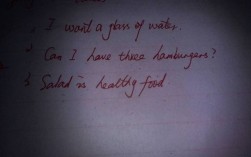 I want a glass of water.
Can I have three hamburgers?
Salad is healthy food